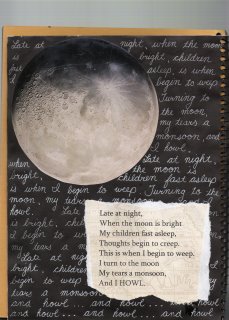 Late at night, when the moon
is bright, children
asleep, is when
I begin
Turning to
the moon,
my tears a
monsoon, and
I howl.
Late at night,
when the moon is
bright, children fast asleep,
is when I begin to weep. Turning to the
moon, my tears a monsoon, and I
howl. Late
is bright, child
I begin to we
my tears a m
Late at nig
bright, childre
begin to weep
my tears a m
and howl... and howl... and howl
and howl... and howl... and howl...
Late at night,
When the moon is bright
My children fast asleep,
Thoughts begin to creep.
This is when I begin to weep.
I turn to the moon
My tears a monsoon,
And I HOWL.